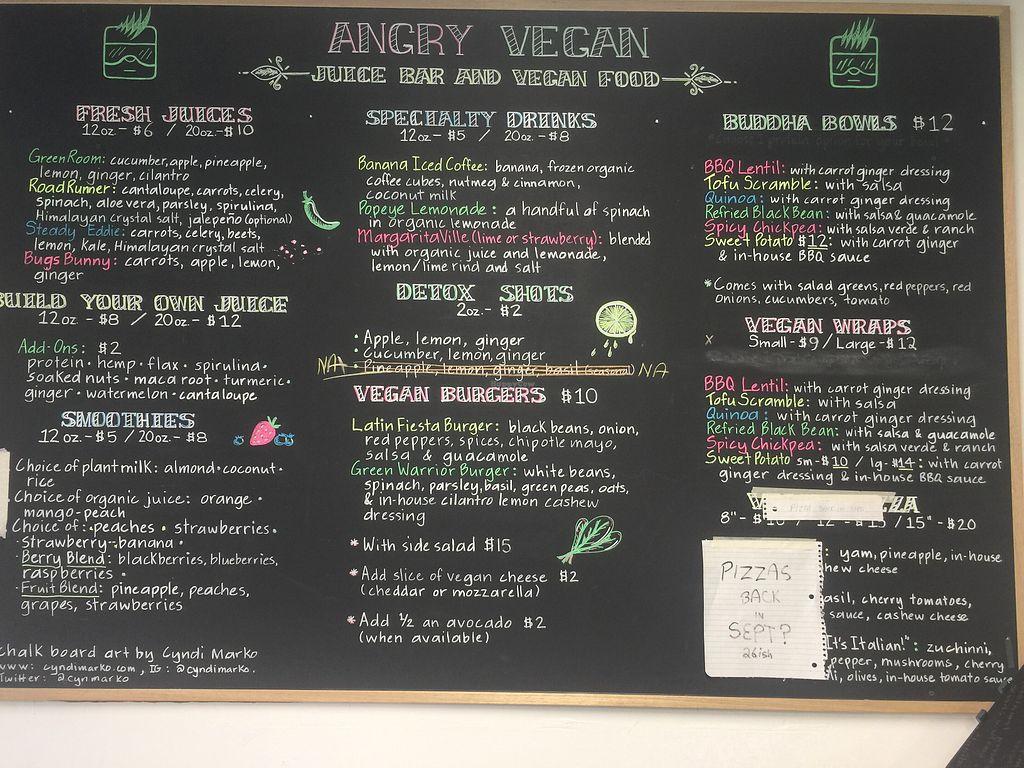 ANGRY VEGAN
JUICE BAR AND VEGAN FOOD
FRESH JUICES
12oz - $6 / 20oz. - $10
Green Room: cucumber, apple, pineapple,
lemon, ginger, cilantro
Road Runner: cantaloupe, carrots, celery,
spinach, aloe vera, parsley, spirulina,
Himalayan crystal salt, jalepeño (optional)
Steady Eddie: carrots, celery, beets,
lemon, kale, Himalayan crystal salt
Bugs Bunny: carrots, apple, lemon,
ginger
BUILD YOUR OWN JUICE
12oz. - $8 / 20oz. - $12
Add-Ons: $2
protein • hemp • flax • spirulina •
soaked nuts • maca root • turmeric •
ginger • watermelon • cantaloupe
SMOOTHIES
12oz. - $5 / 20oz. - $8
Choice of plant milk: almond • coconut •
rice
Choice of organic juice: orange •
mango-peach
Choice of: • peaches • strawberries •
• strawberry-banana •
• Berry Blend: blackberries, blueberries,
raspberries •
• Fruit Blend: pineapple, peaches,
grapes, strawberries
chalk board art by Cyndi Marko
www: cyndimarko.com, IG: @cyndimarko.
Twitter: @cynmarko
SPECIALTY DRINKS
12oz - $5 / 20oz. - $8
Banana Iced Coffee: banana, frozen organic
coffee cubes, nutmeg & cinnamon,
coconut milk
Popeye Lemonade: a handful of spinach
in organic lemonade
Margaritaville (lime or strawberry): blended
with organic juice and lemonade,
lemon/lime rind and salt
DETOX SHOTS
2oz - $2
• Apple, lemon, ginger
• Cucumber, lemon, ginger
NA • Pineapple, lemon, ginger, basil (seasonal) NA
VEGAN BURGERS $10
Latin Fiesta Burger: black beans, onion,
red peppers, spices, chipotle mayo,
salsa & guacamole
Green Warrior Burger: white beans,
spinach, parsley, basil, green peas, oats,
& in-house cilantro lemon cashew
dressing
* With side salad $15
* Add slice of vegan cheese $2
(cheddar or mozzarella)
* Add ½ an avocado $2
(when available)
BUDDHA BOWLS $12
BBQ Lentil: with carrot ginger dressing
Tofu Scramble: with salsa
Quinoa: with carrot ginger dressing
Refried Black Bean: with salsa & guacamole
Spicy Chickpea: with salsa verde & ranch
Sweet Potato $12: with carrot ginger
& in-house BBQ sauce
*Comes with salad greens, red peppers, red
onions, cucumbers, tomato
VEGAN WRAPS
x Small - $9 / Large - $12
BBQ Lentil: with carrot ginger dressing
Tofu Scramble: with salsa
Quinoa: with carrot ginger dressing
Refried Black Bean: with salsa & guacamole
Spicy Chickpea: with salsa verde & ranch
Sweet Potato sm-$10 / lg-$14: with carrot
ginger dressing & in-house BBQ sauce
8" - 12" - $15 / 15" - $20
PIZZAS
BACK
IN
SEPT?
26ish
: yam, pineapple, in-house
cheese
basil, cherry tomatoes,
sauce, cashew cheese
It's Italian!": zuchinni,
pepper, mushrooms, cherry
olives, in-house tomato sauce